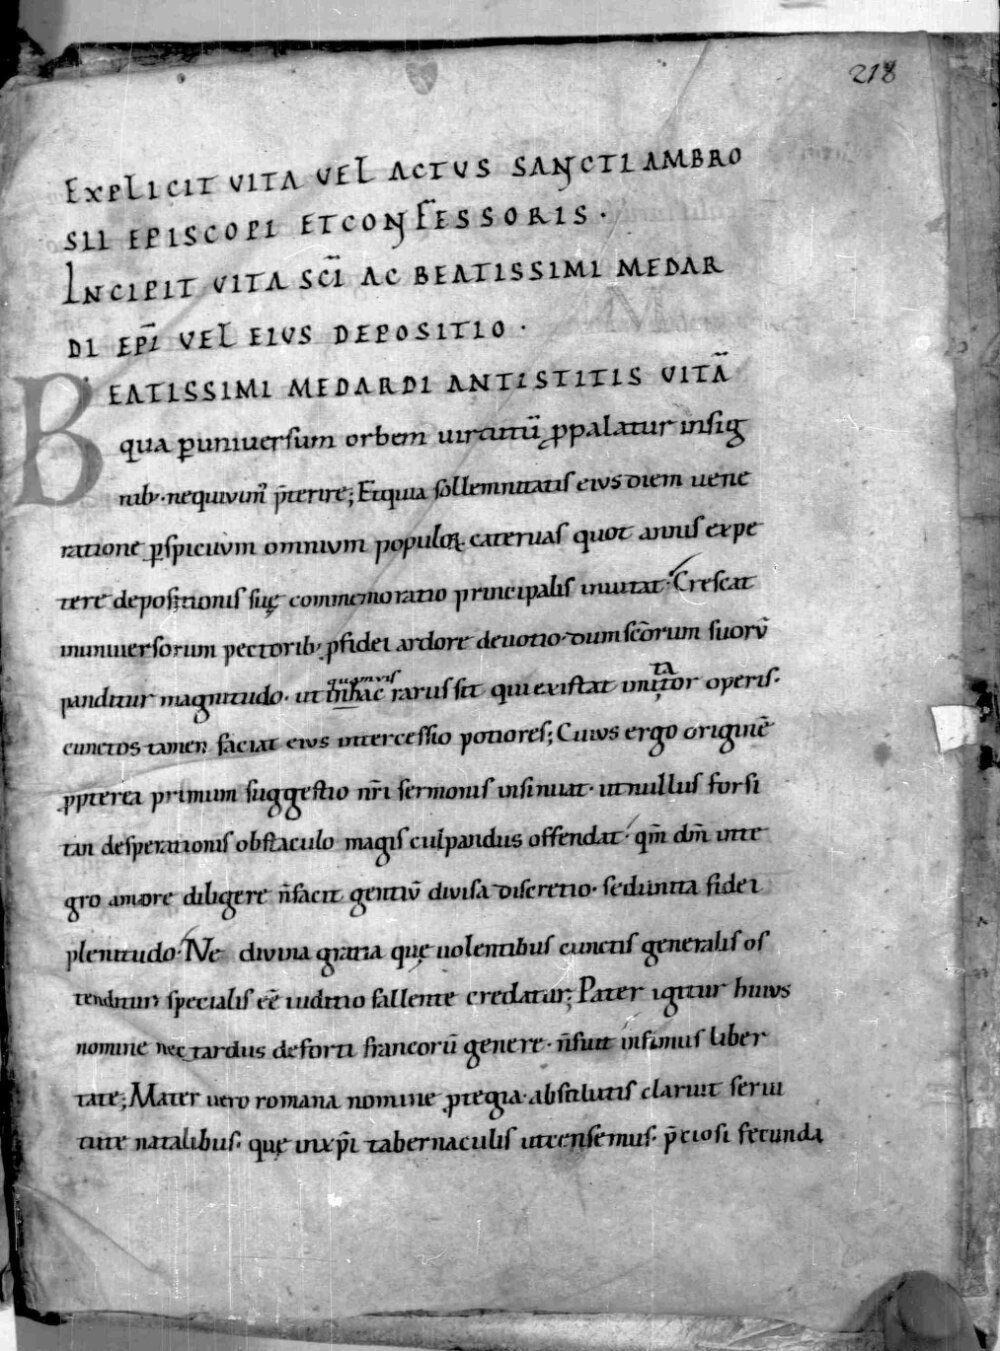 218
EXPLICIT VITA VEL ACTVS SANCTI AMBRO
SII EPISCOPI ET CONFESSORIS ·
INCIPIT VITA SC̄I AC BEATISSIMI MEDAR
DI EP̄I VEL EIVS DEPOSITIO ·
BEATISSIMI MEDARDI ANTISTITIS VITĀ
qua ꝑ uniuersum orbem uirtutū ꝓpalatur insig
nib; · nequiuim᷒ p̄terire; Et quia sollemnitatis eius diem uene
ratione ꝑspicuum omnium populoꝝ cateruas quot annis expe
tere depositionis suę commemoratio principalis inuitat · Crescat
in uniuersorum pectorib; ꝓ fidei ardore deuotio · dum sc̄orum suorū
panditur magnitudo · ut in hac quamuis rarus sit qui existat imitator operis ·
cunctos tamen faciat eius intercessio potiores; Cuius ergo originē
ꝓpterea primum suggestio nr̄i sermonis insinuat · ut nullus forsi
tan desperationis obstaculo magis culpandus offendat · qm̄ dm̄ inte
gro amore diligere n̄ facit gentiū diuisa discretio · sed unita fidei
plenitudo · Ne diuina gratia quę uolentibus cunctis generalis os
tenditur specialis eē iuditio fallente credatur; Pater igitur huius
nomine nectardus de forti francorū genere · n̄ fuit infimus liber
tate; Mater uero romana nomine ꝓtegia · absolutis claruit serui
tute natalibus · quę in xp̄i tabernaculis ut censemus · p̄ciosi fecunda